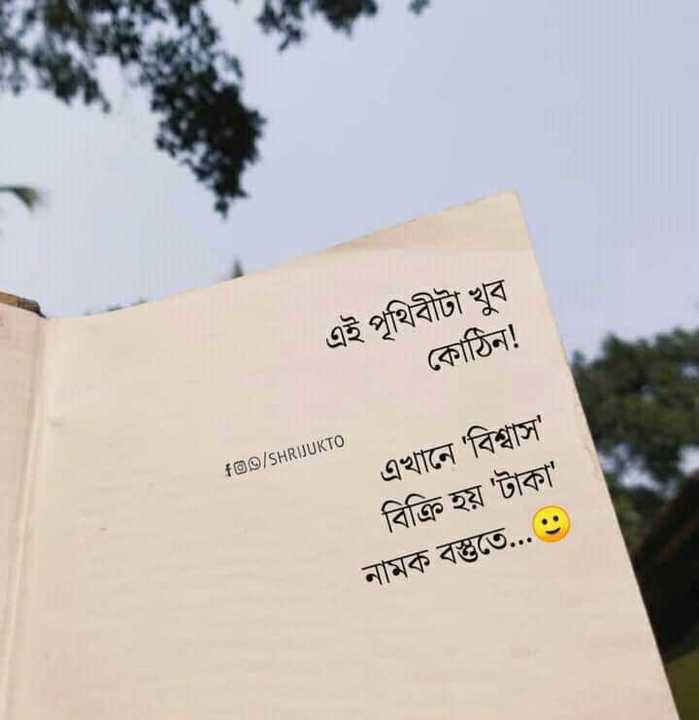 এই পৃথিবীটা খুব
কোঠিন!
f/SHRIJUKTO
এখানে 'বিশ্বাস'
বিক্রি হয় 'টাকা'
নামক বস্তুতে...🙂